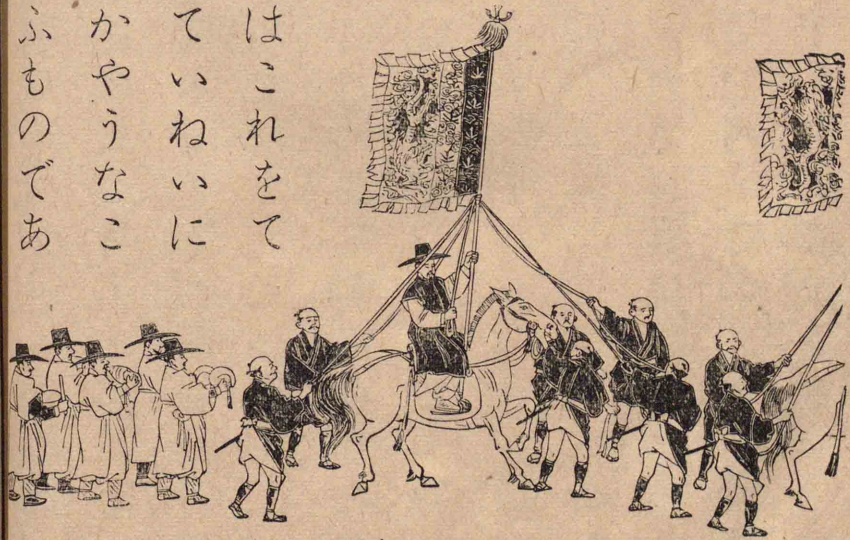 はこれをて
ていねいに
かやうなこ
ふものであ